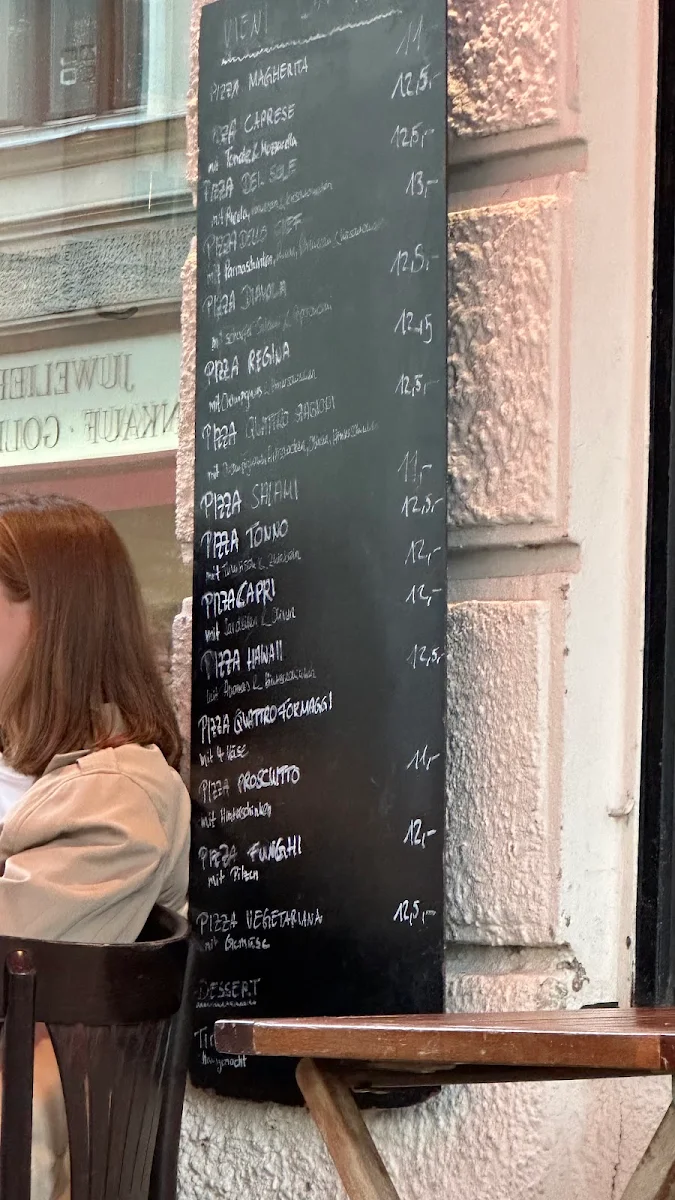 VIENI
11
PIZZA MAGHERITA
12,5,-
PIZZA CAPRESE
mit Tomate & Mozzarella
12,5,-
PIZZA DEL SOLE
mit
13,-
PIZZA DELLO CHEF
mit Parmaschinken,
12,5,-
PIZZA DIAVOLA
mit scharfer Salami & Peperoni
12,5
PIZZA REGINA
mit Champignons & Hinterschinken
12,5,-
PIZZA QUATTRO STAGIONI
mit
11,-
PIZZA SALAMI
12,5,-
PIZZA TONNO
mit Thunfisch & Zwiebeln
12,-
PIZZA CAPRI
mit Sardellen &
12,-
PIZZA HAWAII
mit Ananas & Hinterschinken
12,5,-
PIZZA QUATTRO FORMAGGI
mit 4 Käse
11,-
PIZZA PROSCIUTTO
mit Hinterschinken
12,-
PIZZA FUNGHI
mit Pilzen
12,5,-
PIZZA VEGETARIANA
mit Gemüse
DESSERT
Tir
Hausgemacht
JUWELIER
ANKAUF · GOLD